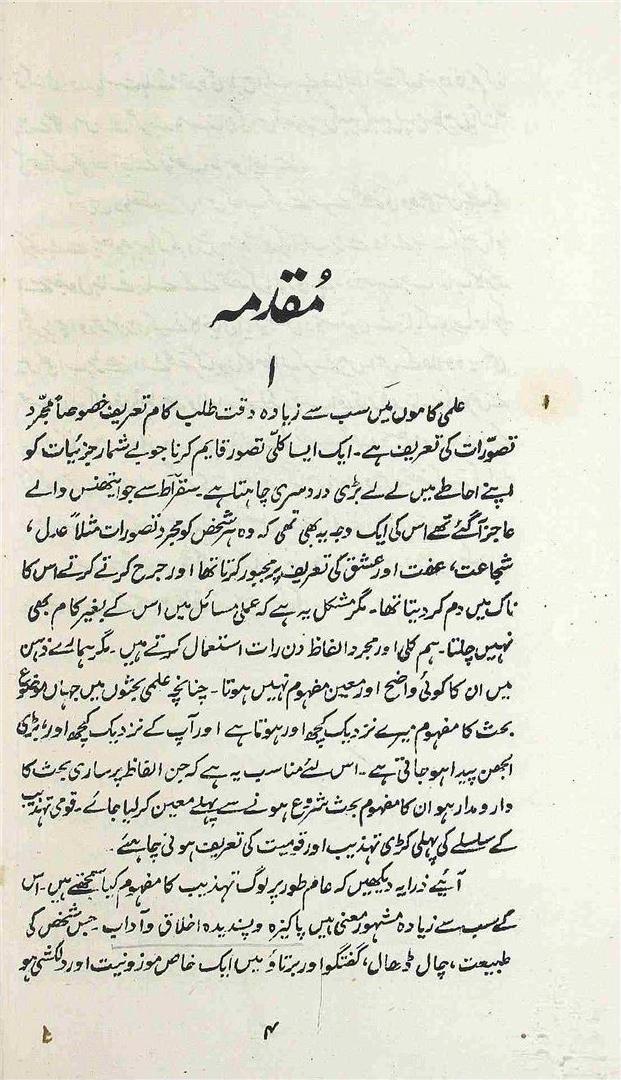 مُقدمہ
ا
علمی کاموں میں سب سے زیادہ دقت طلب کام تعریف خصوصاً مجرّد
تصوّرات کی تعریف ہے۔ ایک ایسا کلّی تصور قایم کرنا جو بے شمار جزئیات کو
اپنے احاطے میں لے لے بڑی دردسری چاہتا ہے۔ سقراط سے جو ایتھنس والے
عاجز آگئے تھے اس کی ایک وجہ یہ بھی تھی کہ وہ ہر شخص کو مجرد تصورات مثلاً عدل،
شجاعت، عفت اور عشق کی تعریف پر مجبور کرتا تھا اور جرح کرتے کرتے اس کا
ناک میں دم کر دیتا تھا۔ مگر مشکل یہ ہے کہ عملی مسائل میں اس کے بغیر کام بھی
نہیں چلتا۔ ہم کلی اور مجرد الفاظ دن رات استعمال کرتے ہیں۔ مگر ہمارے ذہن
میں ان کا کوئی واضح اور معین مفہوم نہیں ہوتا۔ چنانچہ علمی بحثوں میں جہاں موضوع
بحث کا مفہوم میرے نزدیک کچھ اور ہوتا ہے اور آپ کے نزدیک کچھ اور، بڑی
الجھن پیدا ہو جاتی ہے۔ اس لئے مناسب یہ ہے کہ جن الفاظ پر ساری بحث کا
دار و مدار ہو ان کا مفہوم بحث شروع ہونے سے پہلے معین کر لیا جائے۔ قومی تہذیب
کے سلسلے کی پہلی کڑی تہذیب اور قومیت کی تعریف ہونی چاہیے۔
آئیے ذرا یہ دیکھیں کہ عام طور پر لوگ تہذیب کا مفہوم کیا سمجھتے ہیں۔ اس
کے سب سے زیادہ مشہور معنی ہیں پاکیزہ و پسندیدہ اخلاق و آداب۔ جس شخص کی
طبیعت، چال ڈھال، گفتگو اور برتاؤ میں ایک خاص موزونیت اور دلکشی ہو